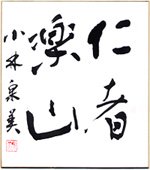 仁者
楽山
小林泉美